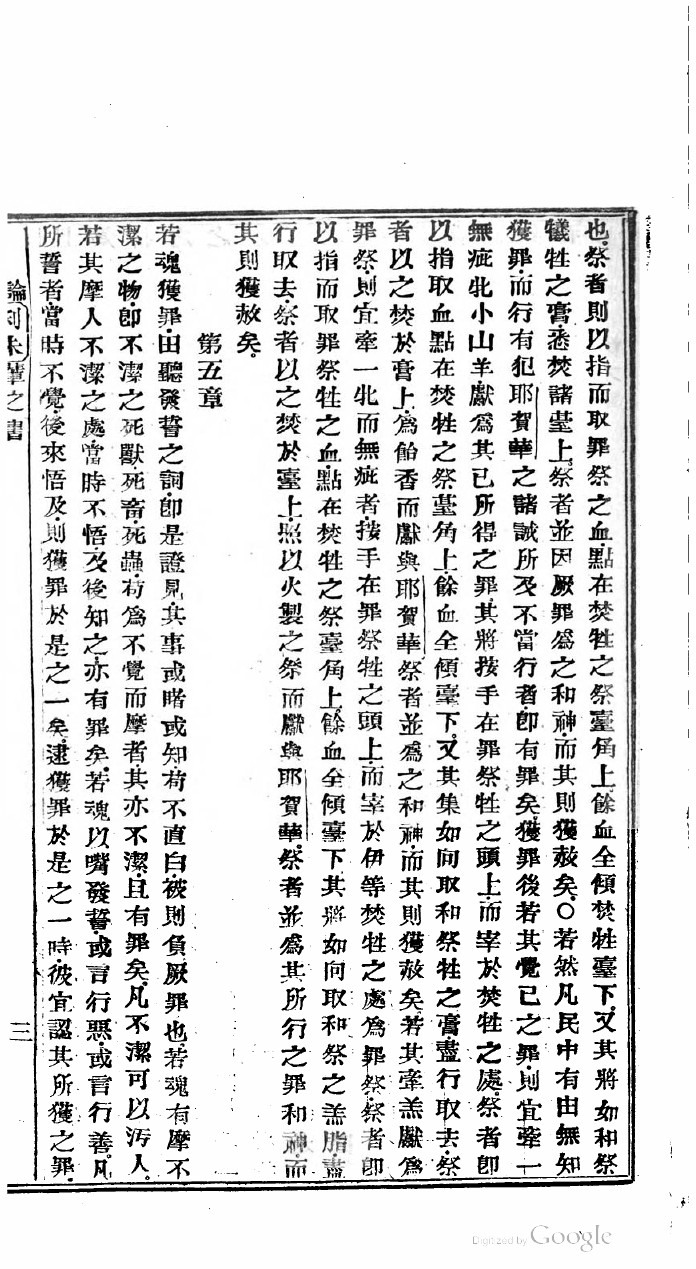 也.祭者則以指而取罪祭之血.點在焚牲之祭臺角上.餘血全傾焚牲臺下.又其將如和祭
犧牲之膏.悉焚諸臺上.祭者並因厥罪爲之和神.而其則獲赦矣.○若然凡民中有由無知
獲罪.而行有犯耶賀華之諸誡所及不當行者.卽有罪矣.獲罪後若其覺己之罪.則宜牽一
無疵牝小山羊獻爲其已所得之罪.其將按手在罪祭牲之頭上.而宰於焚牲之處.祭者卽
以指取血點在焚牲之祭臺角上.餘血全傾臺下.又其集如向取和祭牲之膏盡行取去.祭
者以之焚於膏上.爲飴香而獻與耶賀華.祭者並爲之和神.而其則獲赦矣.若其牽羔獻爲
罪祭.則宜牽一牝而無疵者.按手在罪祭牲之頭上.而宰於伊等焚牲之處爲罪祭.祭者卽
以指而取罪祭牲之血.點在焚牲之祭臺角上.餘血全傾臺下.其將如向取和祭之羔脂盡
行取去.祭者以之焚於臺上.照以火製之祭而獻與耶賀華.祭者並爲其所行之罪和神.而
其則獲赦矣.
第五章
若魂獲罪.由聽發誓之詞.卽是證見其事或睹或知.苟不直白.彼則負厥罪也.若魂有摩不
潔之物.卽不潔之死獸.死畜.死蟲.苟爲不覺而摩者.其亦不潔.且有罪矣.凡不潔可以污人.
若其摩人不潔之處.當時不悟.及後知之.亦有罪矣.若魂以嘴發誓.或言行惡.或言行善.凡
所誓者.當時不覺.後來悟及.則獲罪於是之一矣.逮獲罪於是之一時.彼宜認其所獲之罪.
論利未輩之書
三
Digitized by Google